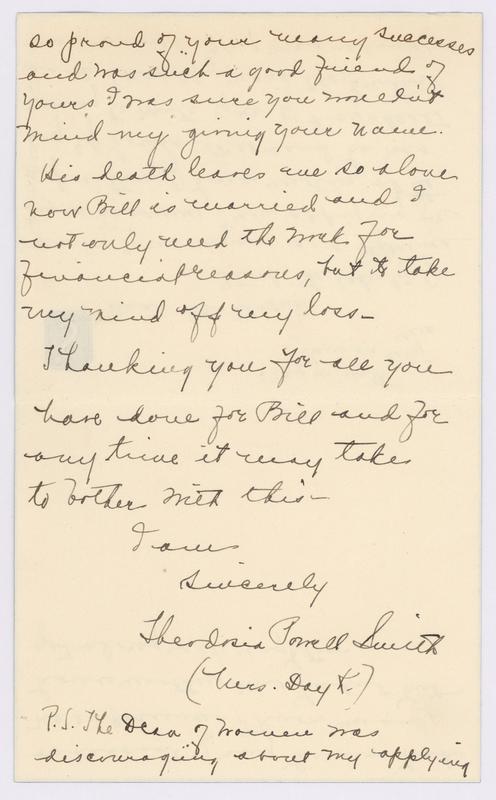 so proud of your many successes
and was such a good friend of
yours I was sure you wouldn't
mind my giving your name.
His death leaves me so alone
now Bill is married and I
not only need the work for
financial reasons, but to take
my mind off my loss—
Thanking you for all you
have done for Bill and for
any time it may take
to bother with this—
I am
Sincerely
Theodosia Powell Smith
(Mrs. Day K.)
P.S. The Dean of Women was
discouraging about my applying